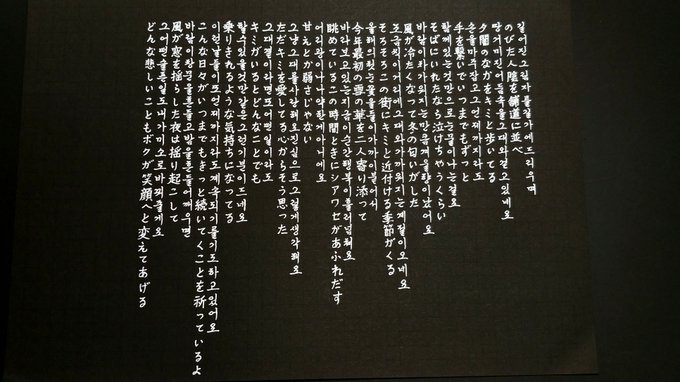 길어진그림자를길가에드리우며
のびた人陰を舗道に並べ
땅거미진어둠속을그대와걷고있네요
夕闇のなかをキミと歩いてる
손을마주잡고그언제까지라도
手を繋いでいつまでもずっと
함께있는것만으로눈물이나는걸요
そばにいれたなら泣けちゃうくらい
바람이차가워지는만큼겨울향이났어요
風が冷たくなって冬の匂いがした
조금씩이거리에그대와가까워지는계절이오네요
そろそろこの街にキミと近付ける季節がくる
올해의첫눈꽃을둘이가까이붙어서
今年最初の雪の華を二人寄り添って
바라보고있는지금이순간행복이흘러넘쳐요
眺めているこの時間ときにシアワセがあふれだす
어리광이나나약한게아니에요
甘えとか弱さじゃない
그냥그대를사랑해요진심으로그렇게생각해요
ただキミを愛してる心からそう思った
그대곁이라면또어떤일이라도
キミがいるとどんなことでも
할수있을것만같은그런기분이드네요
乗りきれるような気持ちになってる
이런날들이또언제까지라도계속되기를기도하고있어요
こんな日々がいつまでもきっと続いてくことを祈っているよ
바람이창문을흔들고밤을흔들어깨우면
風が窓を揺らした夜は揺り起こして
그어떤슬픈일도내가미소로바꿔줄게요
どんな悲しいこともボクが笑顔へと変えてあげる